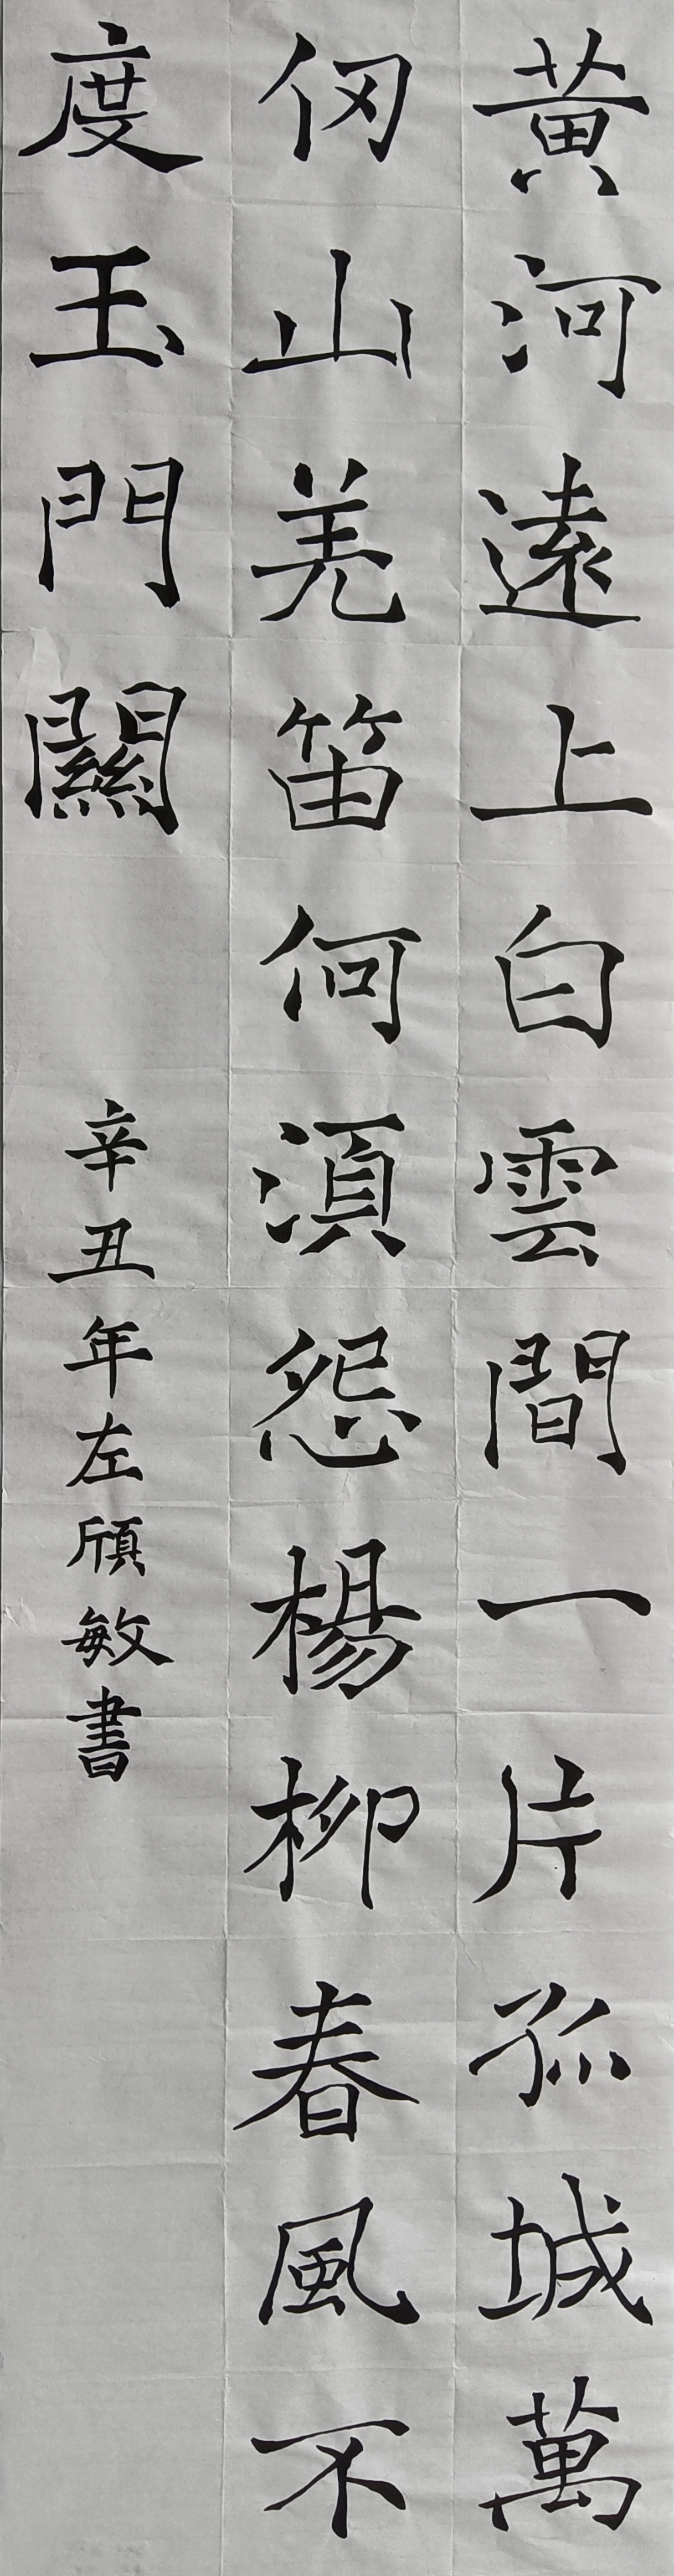 黃河遠上白雲間一片孤城萬
仞山羌笛何湏怨楊柳春風不
度玉門關
辛丑年左頎敏書